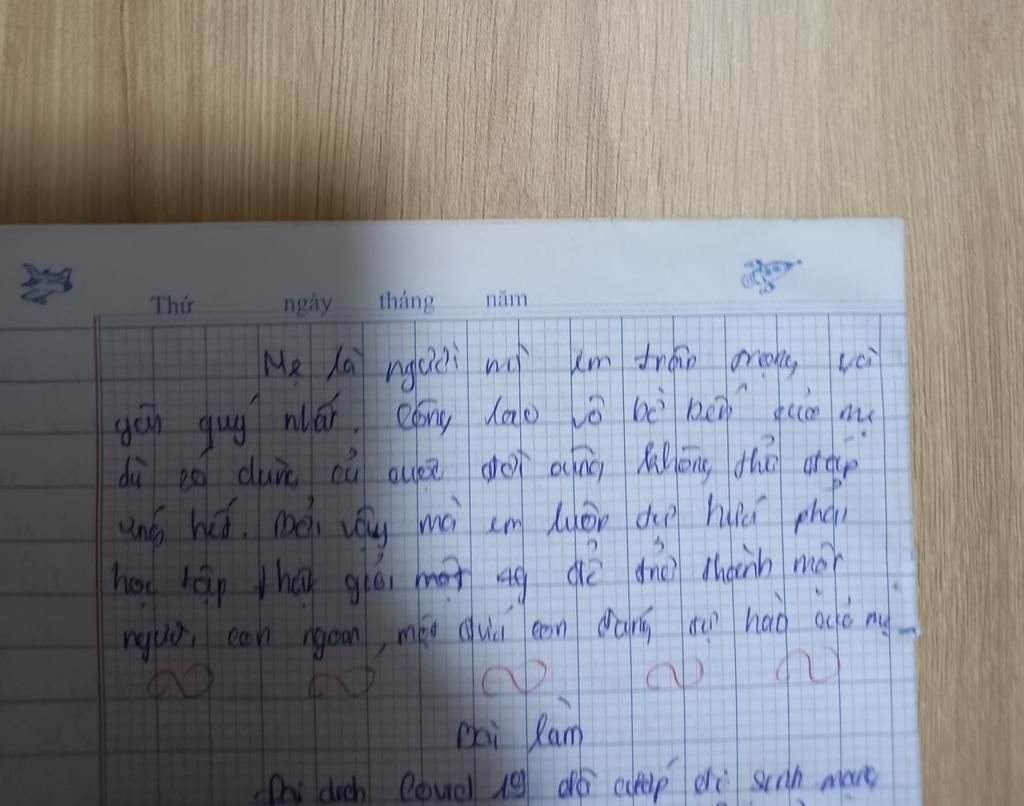 Thứ ngày tháng năm
Mẹ là người mà em trân trọng và
gần quý nhất. Công lao vô bờ bến của mẹ
dù có dùng cả cuộc đời cũng không thể đáp
ứng hết. Bởi vậy mà em luôn tự hứa phải
học tập thật giỏi một để trở thành một
người con ngoan, một đứa con đáng tự hào của mẹ
Bài làm
Đại dịch Covid 19 đã cướp đi sinh mạng